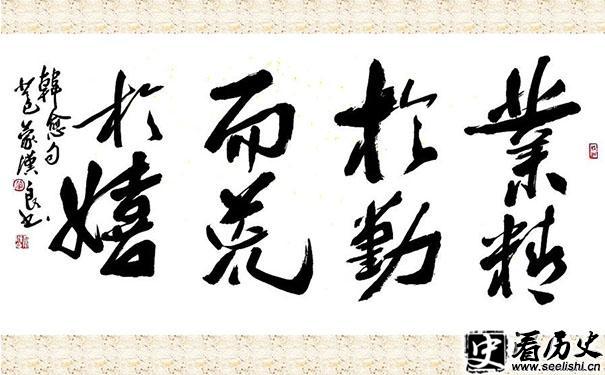 業精
於勤
而荒
於嬉
韓愈句
漢良书
史 看历史
www.seelishi.cn